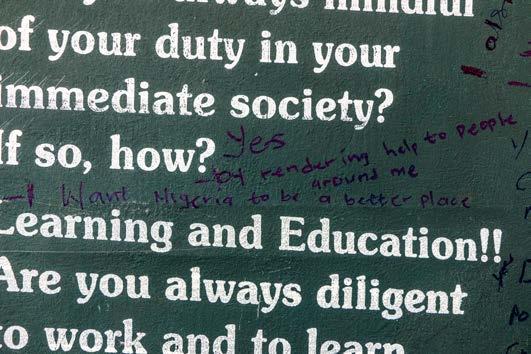 always mindful
of your duty in your
immediate society?
If so, how? Yes
by rendering help to people
around me
I Want Nigeria to be a better place
Learning and Education!!
Are you always diligent
to work and to learn